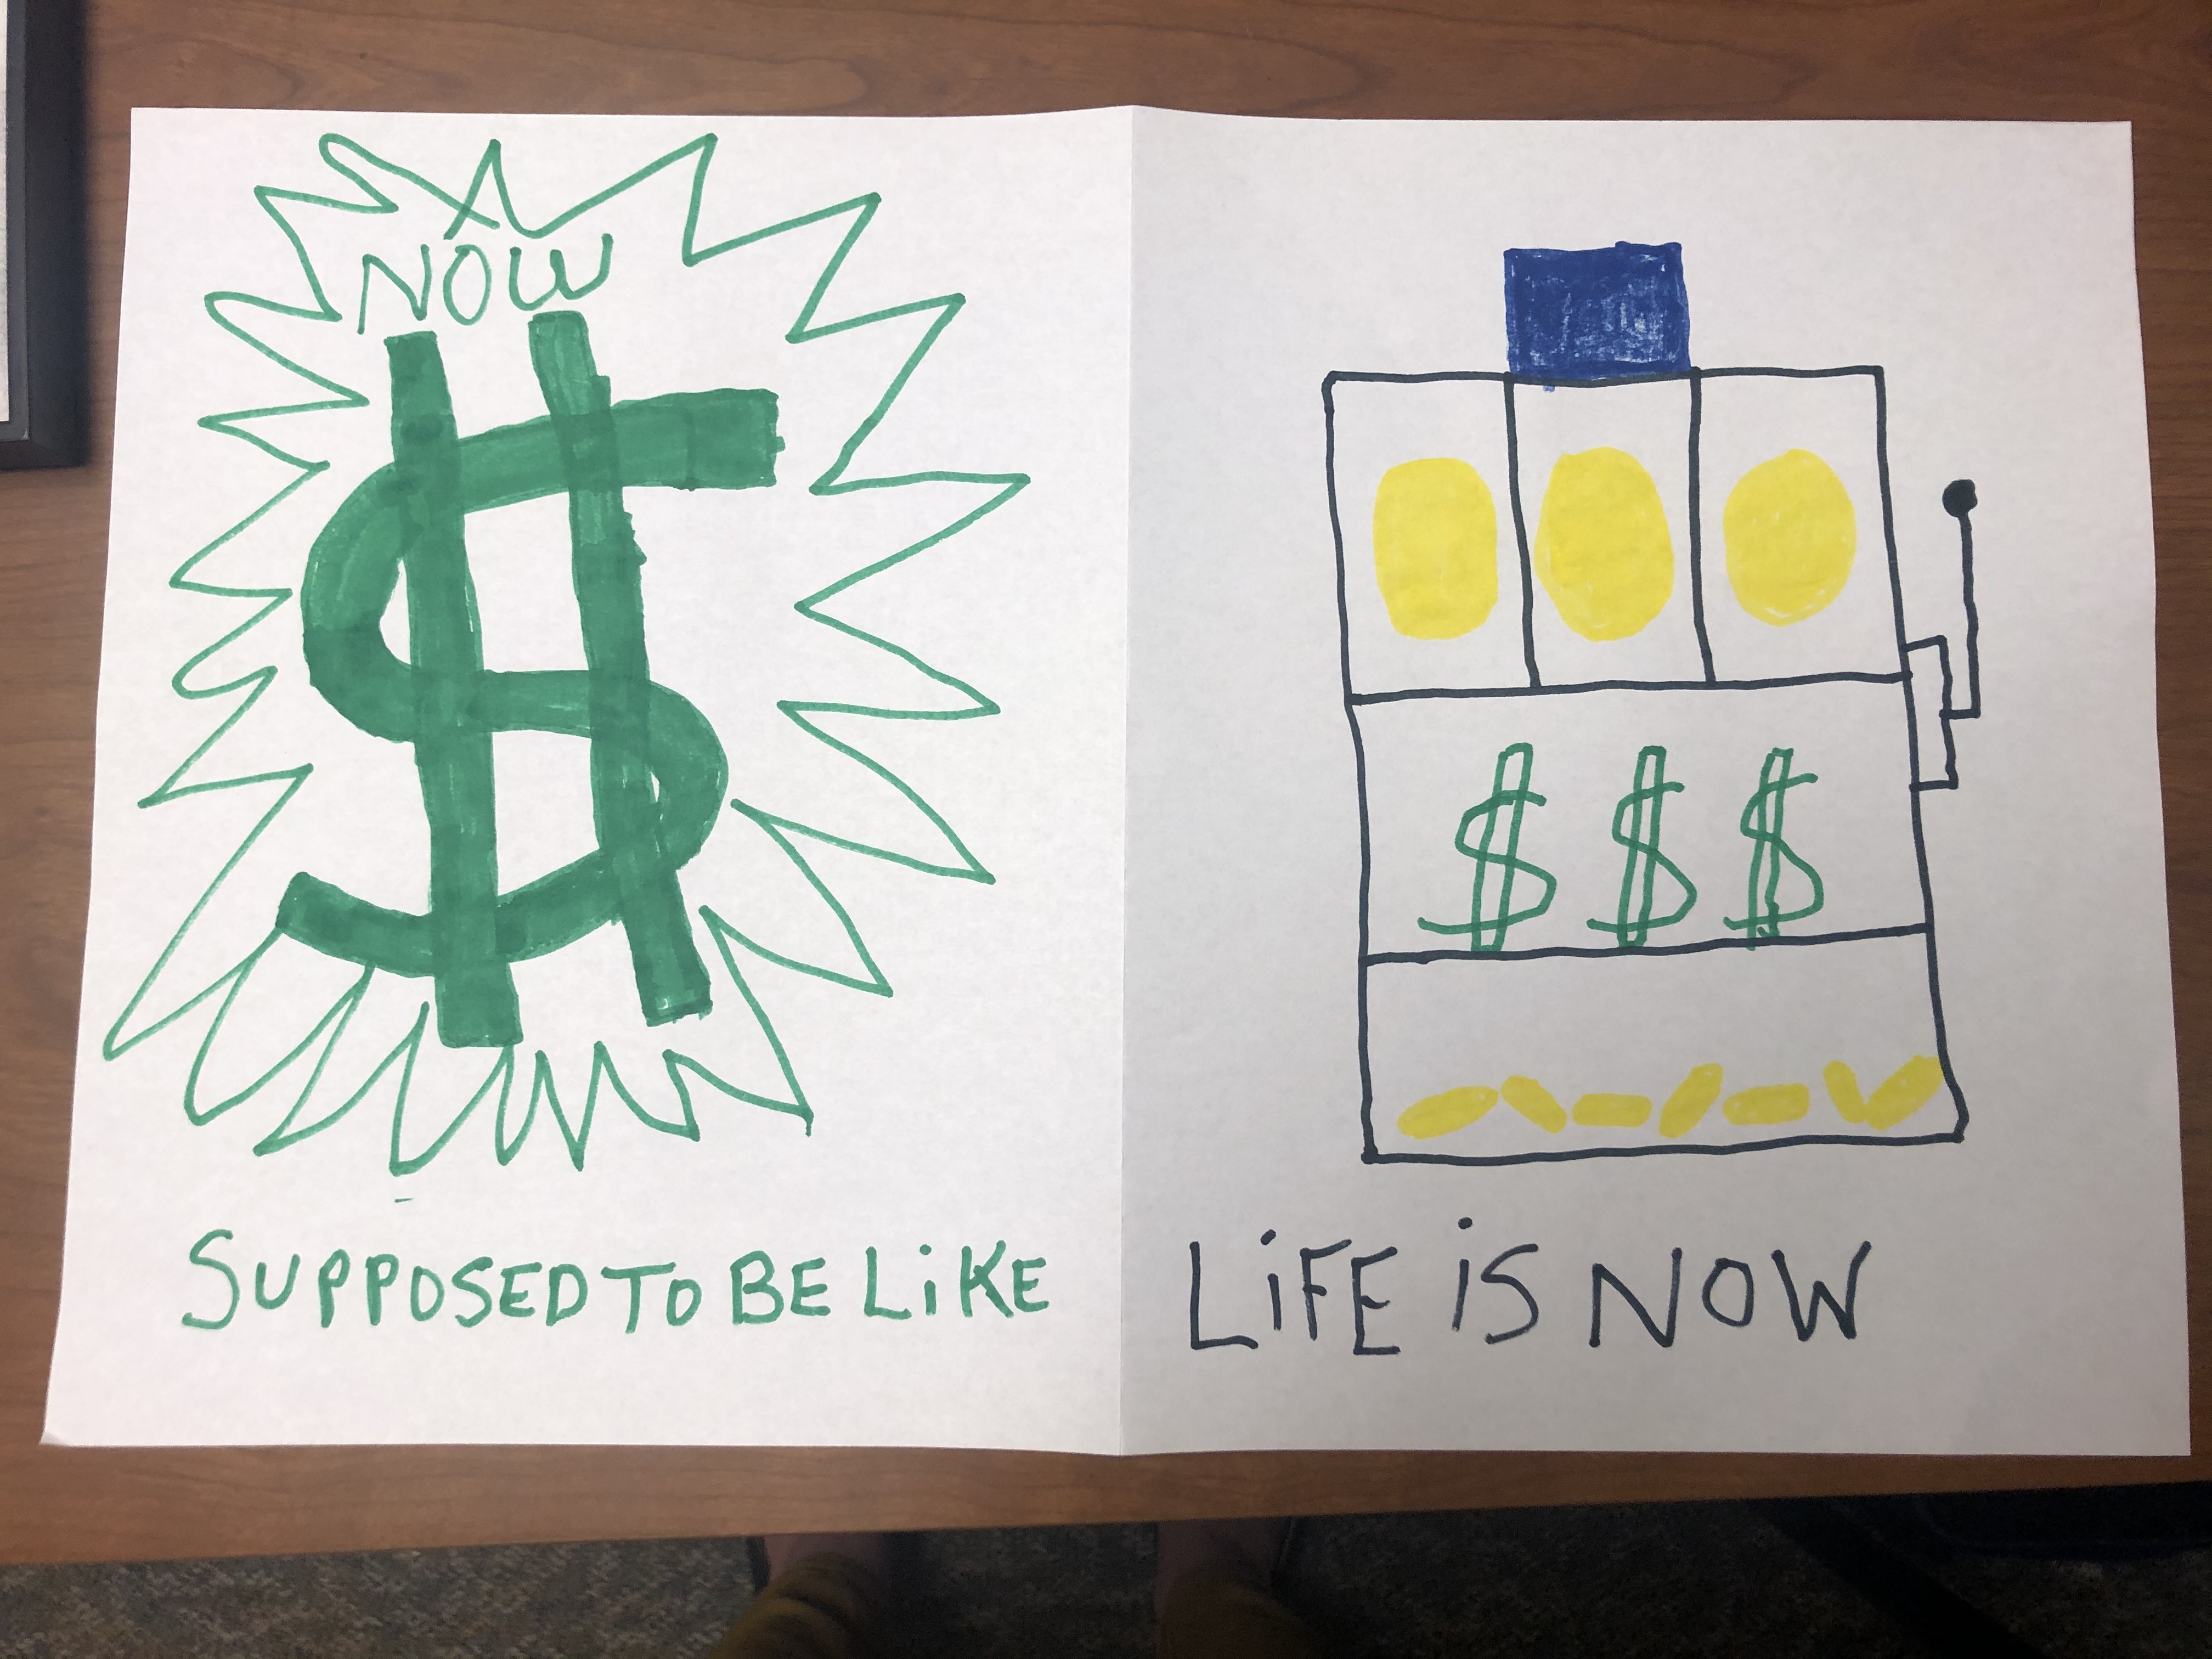 NOW
SUPPOSED TO BE LiKE
$ $ $
LiFE iS NOW